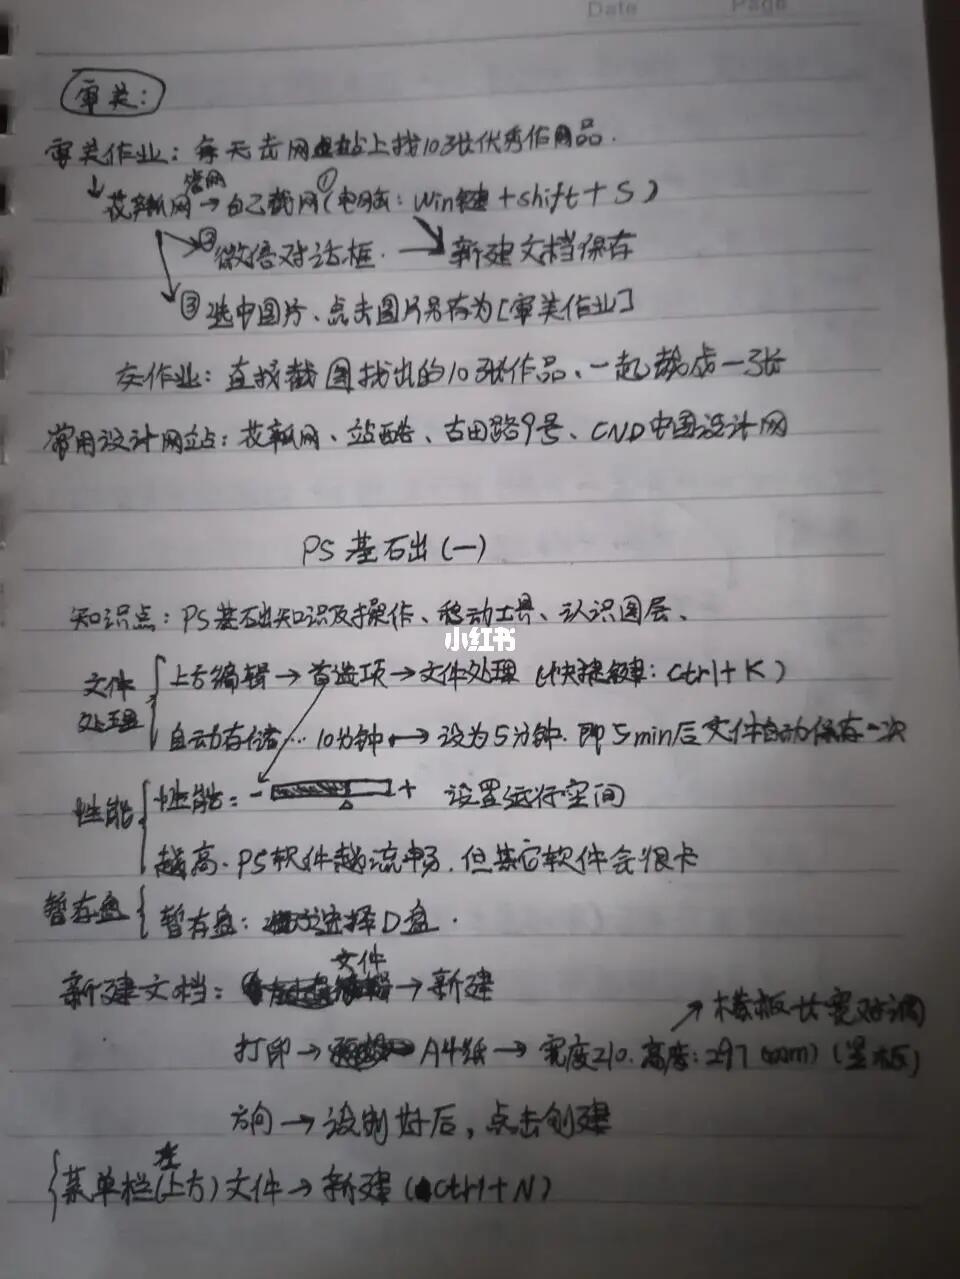 Date Page
审美：
审美作业：每天去网站上找10张优秀作品.
官网 ①
↓花瓣网→自己截网(电脑：Win键+shift+S)
②微信对话框. → 新建文档保存
③选中图片、点击图片另存为[审美作业]
交作业：直接截图找出的10张作品、一起截成一张
常用设计网站：花瓣网、站酷、古田路9号、CND中国设计网
PS基础(一)
知识点：PS基础知识及操作、移动工具、认识图层、
小红书
文件处理 { 上方编辑→首选项→文件处理 (快捷键：Ctrl+K)
自动存储…10分钟→设为5分钟.即5min后文件自动保存一次
性能 { 性能：- + 设置运行空间
越高.PS软件越流畅.但其它软件会很卡
暂存盘 { 暂存盘：选择D盘.
新建文档：文件→新建
↗横板长宽对调
打印→A4纸→宽度210.高度:297(mm)(竖板)
方向→设制好后，点击创建
{菜单栏(左上方)文件→新建(Ctrl+N)